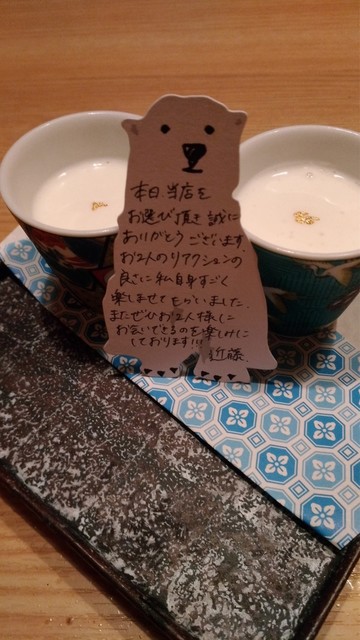 本日、当店を
お選び頂き誠に
ありがとうございます
お2人のリアクションの
良さに私自身すごく
楽しませてもらいました、
またぜひお2人様に
お会いできるのを楽しみに
しております!!!
近藤、